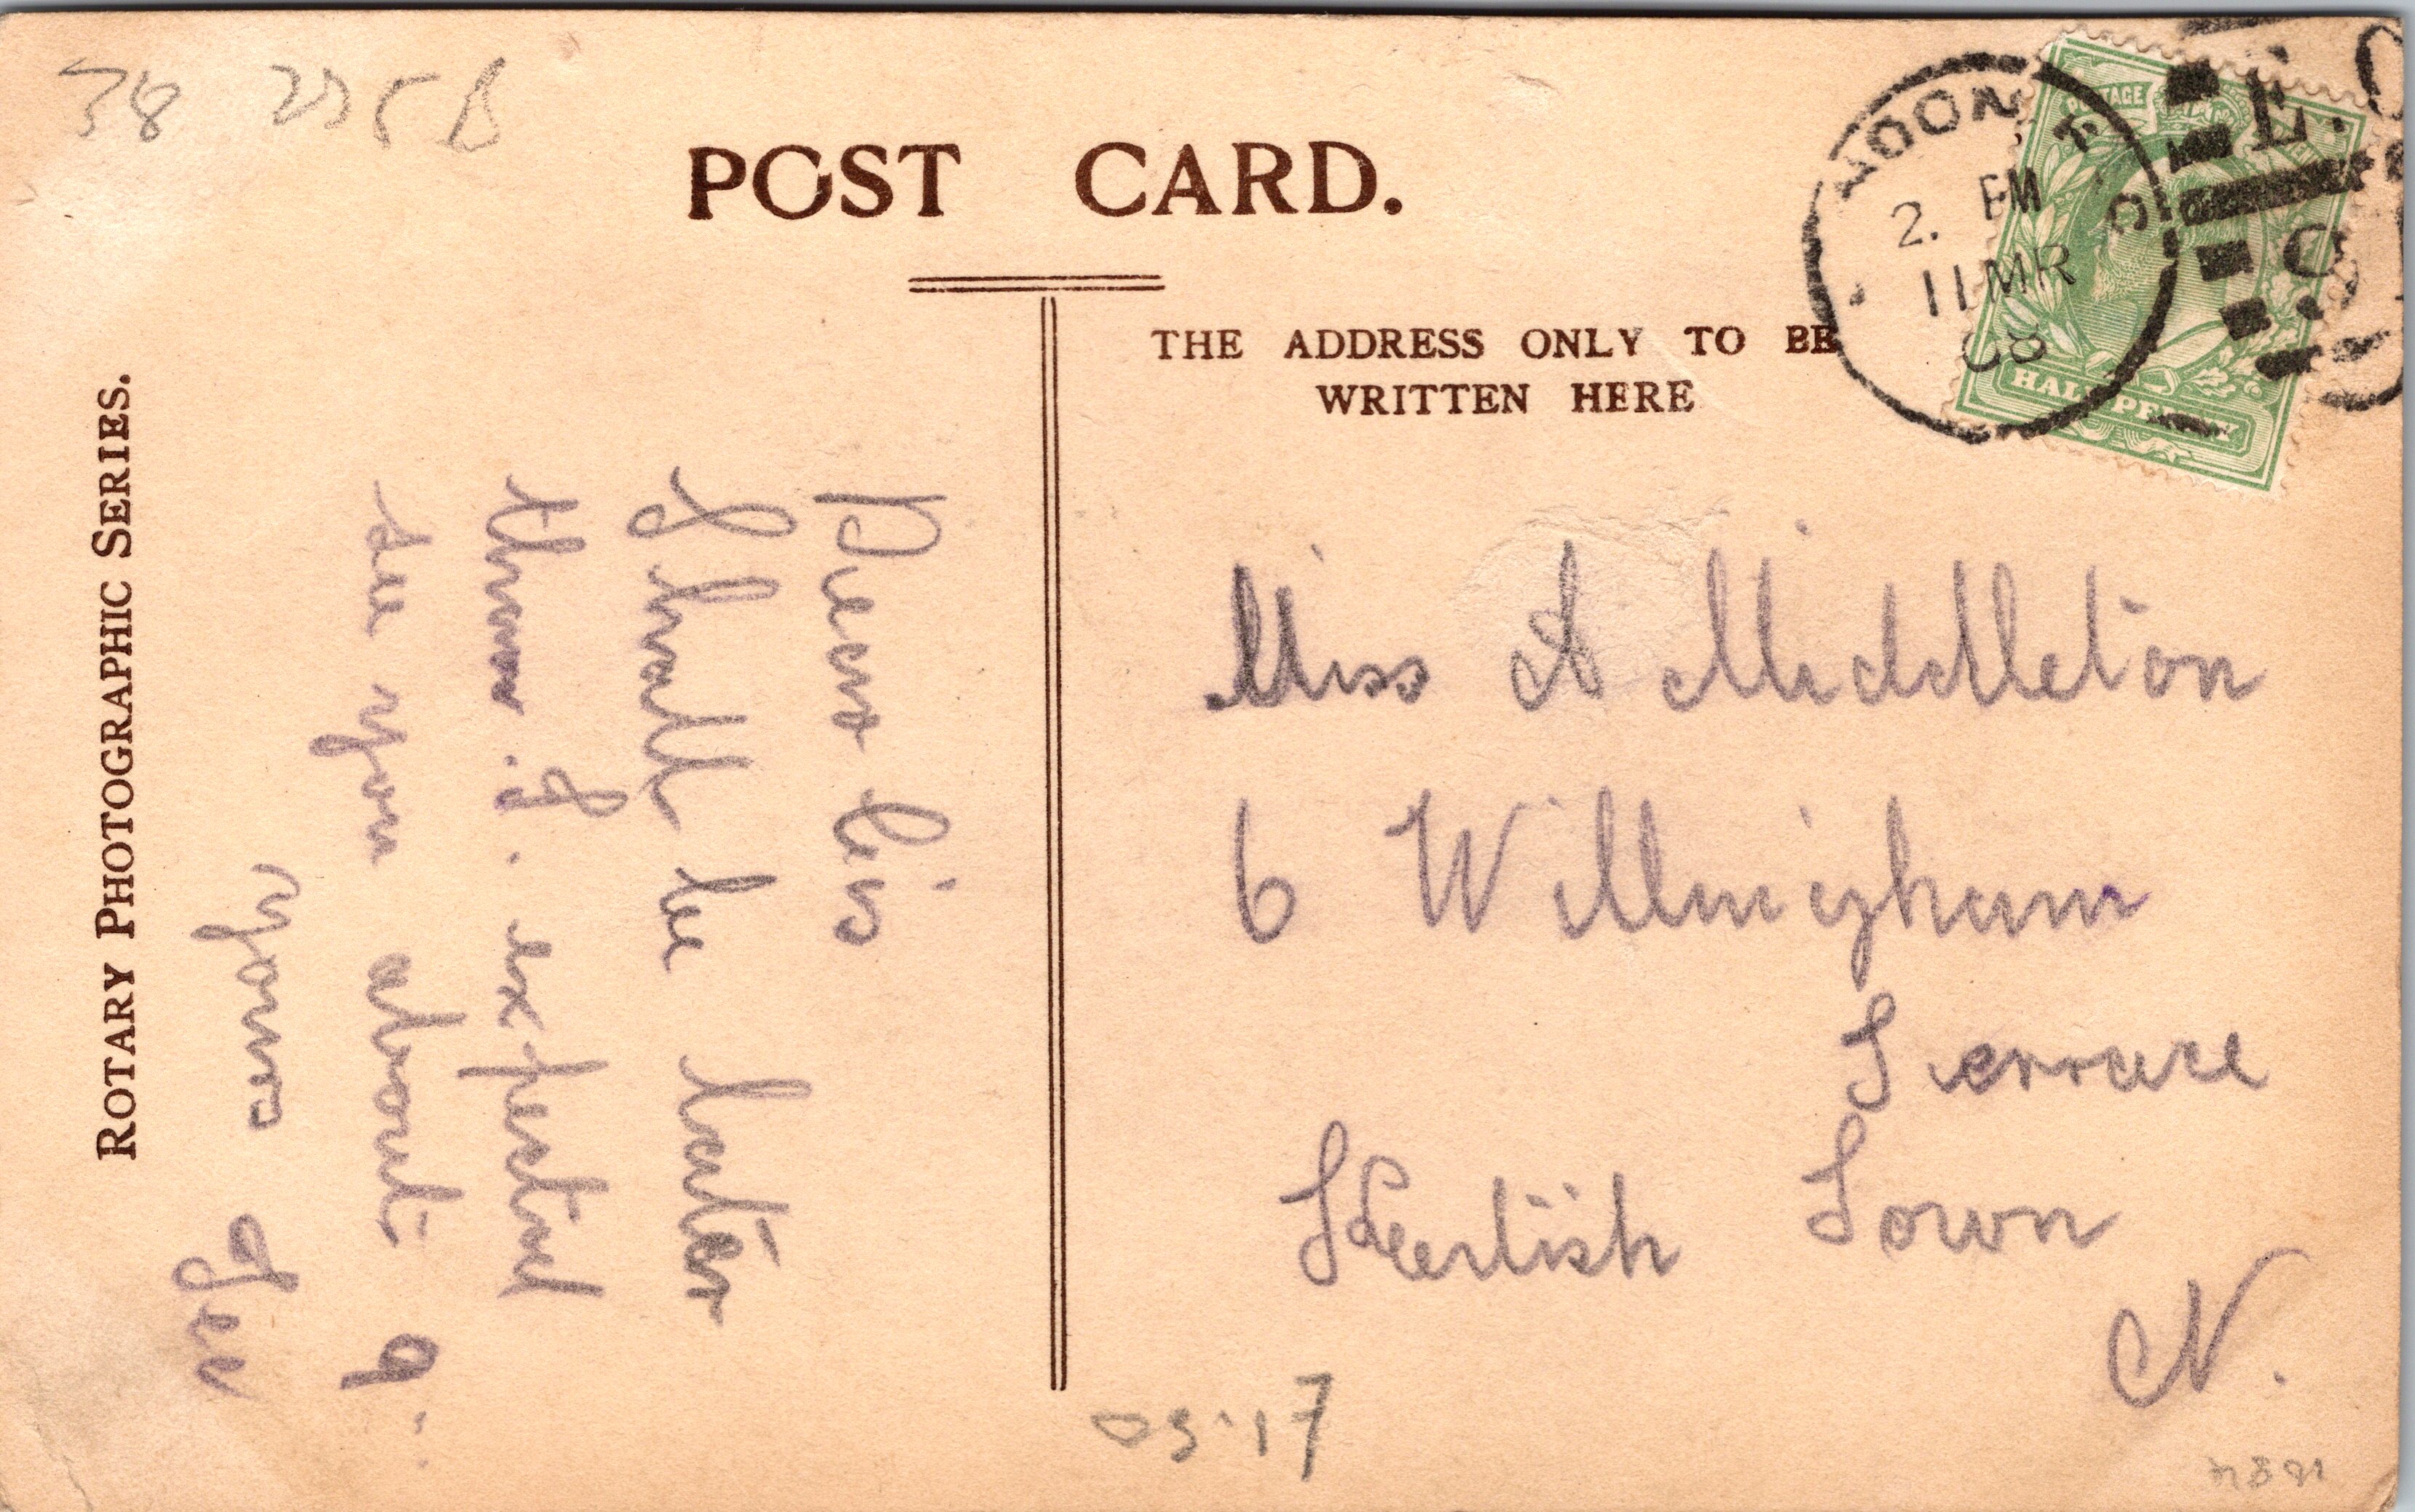 38 275 B
POST CARD.
THE ADDRESS ONLY TO BE
WRITTEN HERE
ROTARY PHOTOGRAPHIC SERIES.
2. PM
11 MR
08
E.C
POSTAGE
HALFPENNY
Dear Lis
I shall be later
than I expected
see you about 9.
yours
Miss A Middleton
6 Willingham
Terrace
Kentish Town
N.